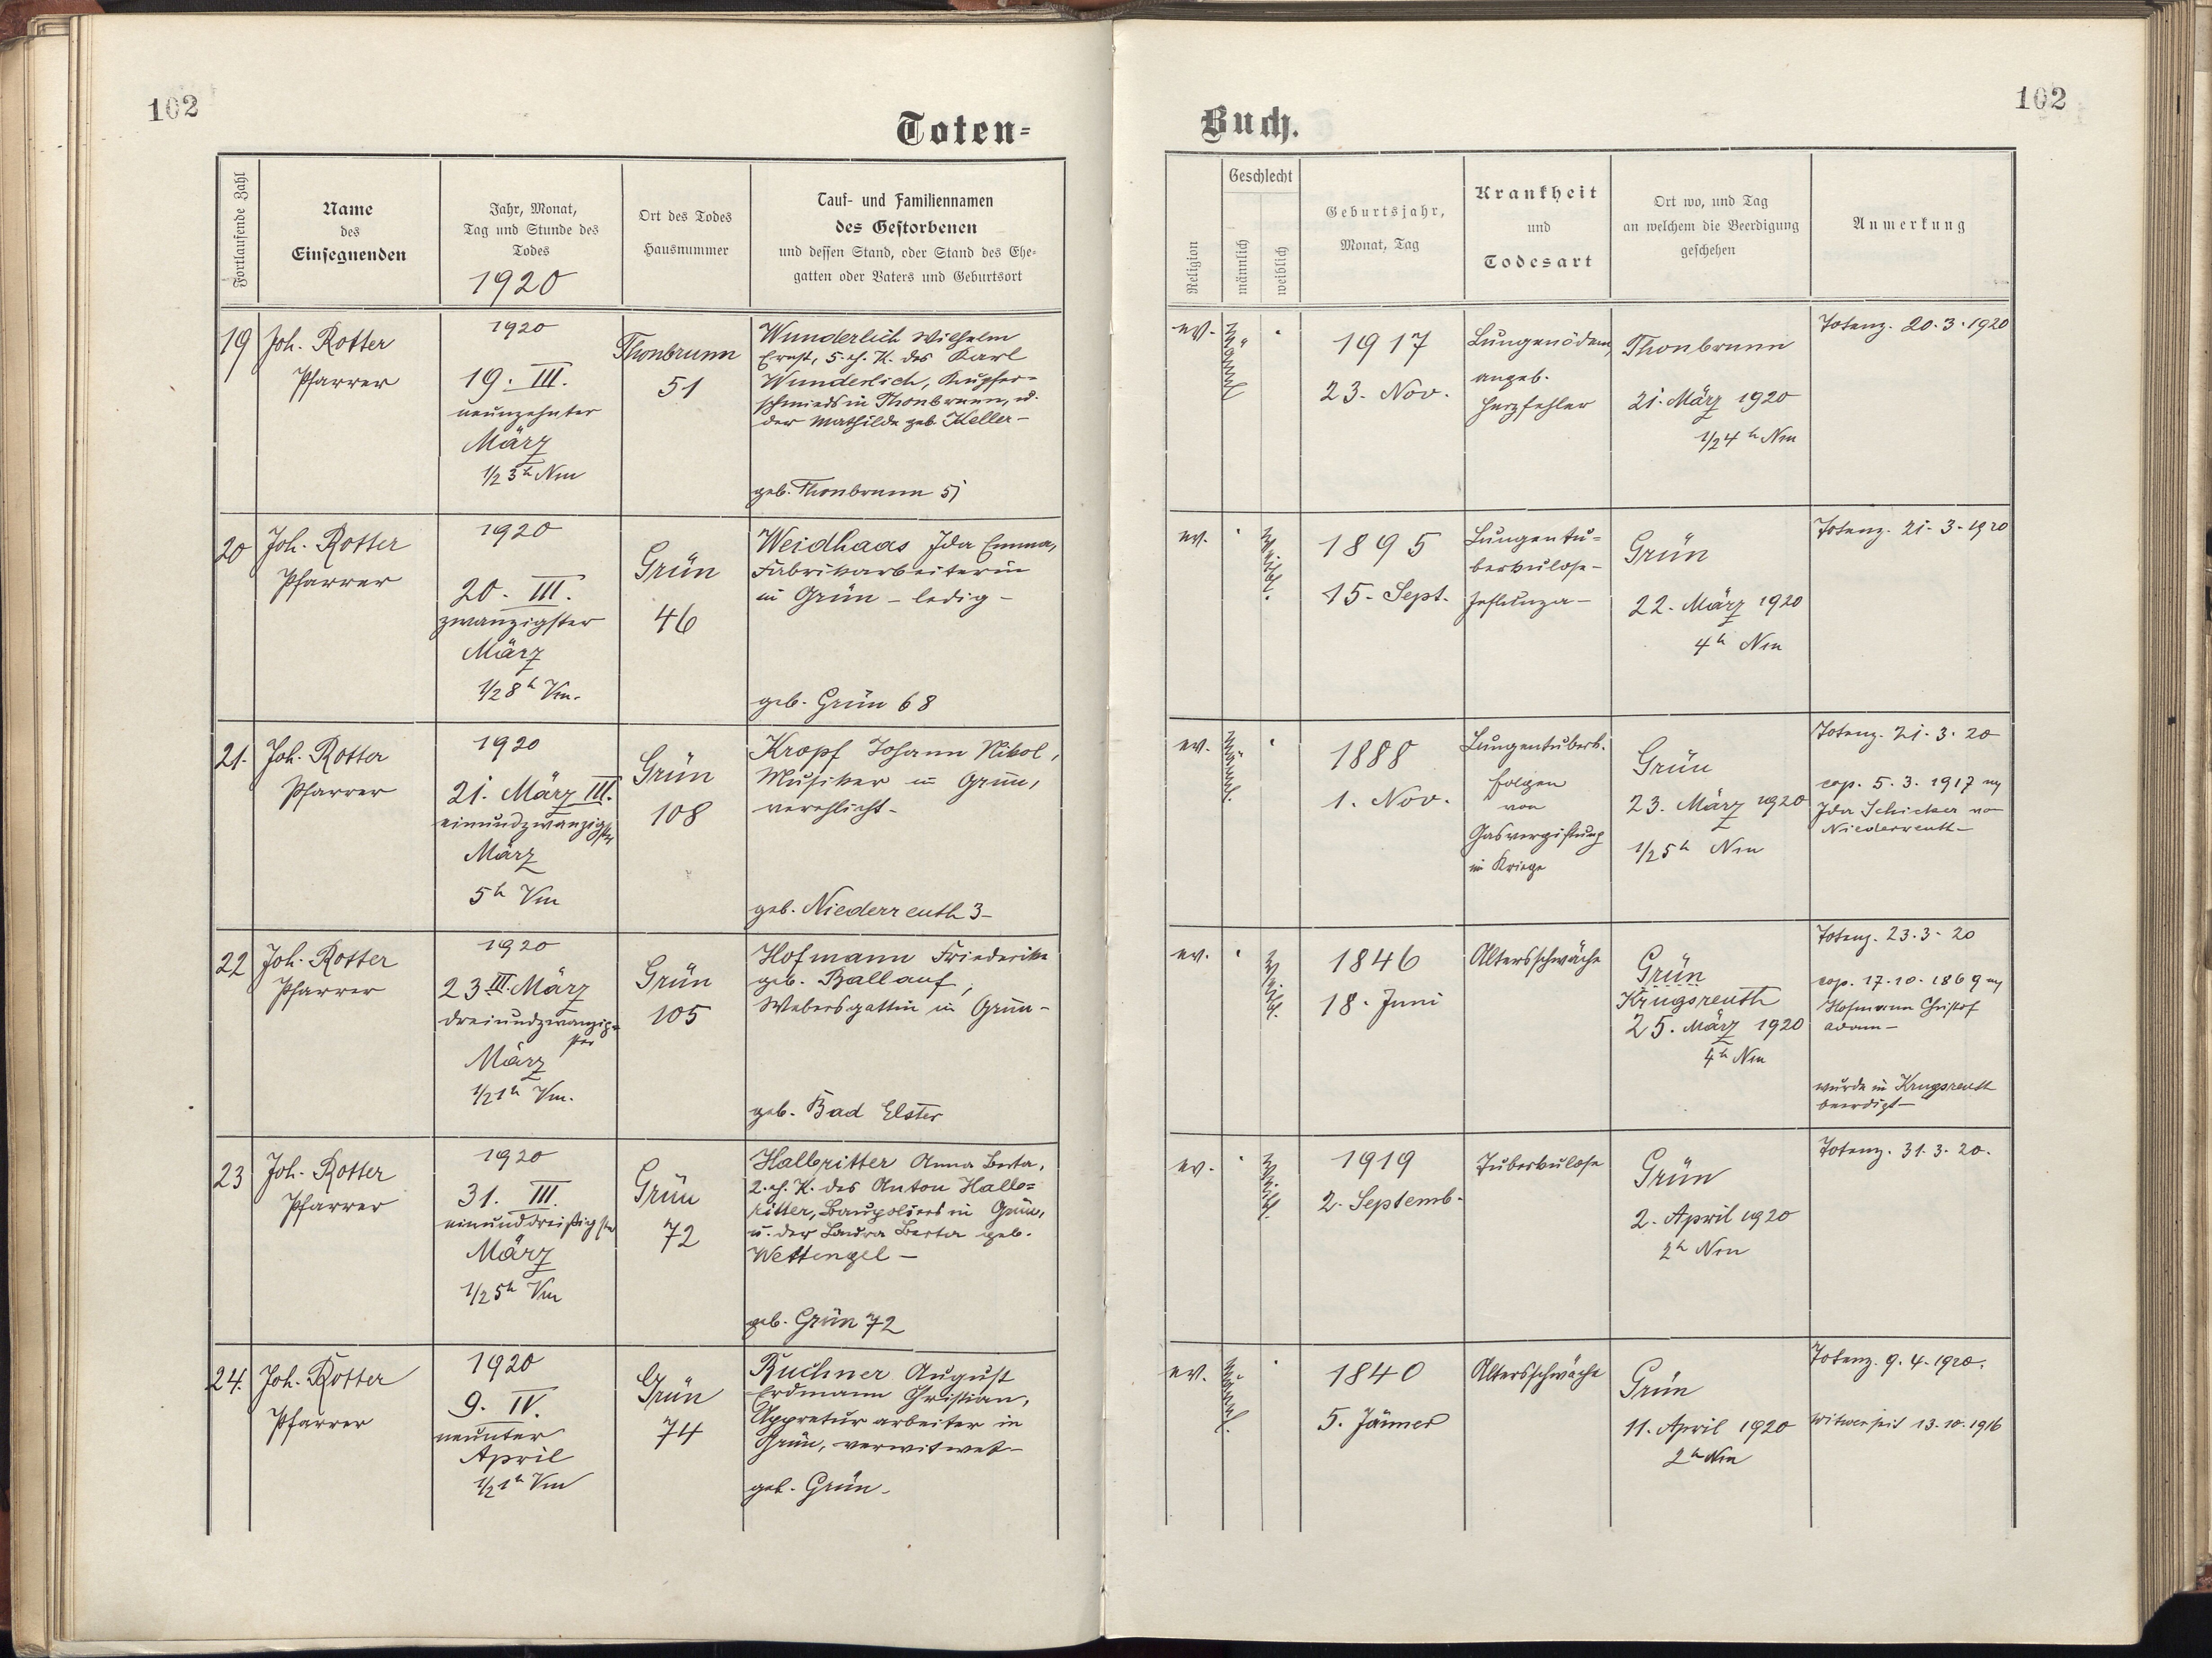 102
Toten=
Fortlaufende Zahl
Name
des
Einsegnenden
Jahr, Monat,
Tag und Stunde des
Todes
1920
Ort des Todes
Hausnummer
Tauf- und Familiennamen
des Gestorbenen
und dessen Stand, oder Stand des Ehe-
gatten oder Vaters und Geburtsort
19
Joh. Rotter
Pfarrer
1920
19. III.
neunzehnter
März
1/2 3h Nm
Thonbrunn
51
Wunderlich Wilhelm
Ernst, 5. eh. K. des Karl
Wunderlich, Kupfer-
schmieds in Thonbrunn, u.
der Mathilde geb. Keller -
geb. Thonbrunn 51
20
Joh. Rotter
Pfarrer
1920
20. III.
zwanzigster
März
1/2 8h Vm.
Grün
46
Weidhaas Ida Emma,
Fabrikarbeiterin
in Grün - ledig -
geb. Grün 68
21.
Joh. Rotter
Pfarrer
1920
21. März III.
einundzwanzigster
März
5h Vm
Grün
108
Kropf Johann Nikol,
Musiker in Grün,
verehlicht -
geb. Niederreuth 3 -
22
Joh. Rotter
Pfarrer
1920
23. III. März
dreiundzwanzig-
ster
März
1/2 1h Vm.
Grün
105
Hofmann Friederike
geb. Ballauf,
Webersgattin in Grün -
geb. Bad Elster
23
Joh. Rotter
Pfarrer
1920
31. III.
einunddreißigster
März
1/2 5h Vm
Grün
72
Halbritter Anna Berta,
2. eh. K. des Anton Halb=
ritter, Baupoliers in Grün,
u. der Laura Berta geb.
Wettengel -
geb. Grün 72
24.
Joh. Rotter
Pfarrer
1920
9. IV.
neunter
April
1/2 1h Vm
Grün
74
Buchner August
Erdmann Christian,
Appreturarbeiter in
Grün, verwitwet -
geb. Grün -
102
Buch.
Religion
Geschlecht
männlich
weiblich
Geburtsjahr,
Monat, Tag
Krankheit
und
Todesart
Ort wo, und Tag
an welchem die Beerdigung
geschehen
Anmerkung
ev.
männl.
1917
23. Nov.
Lungenödem,
angeb.
Herzfehler
Thonbrunn
21. März 1920
1/2 4h Nm
Totenz. 20.3.1920
ev.
weibl.
1895
15. Sept.
Lungentu=
berkulose -
Influenza -
Grün
22. März 1920
4h Nm
Totenz. 21.3.1920
ev.
männl.
1888
1. Nov.
Lungentuberk.
folgen
von
Gasvergiftung
im Kriege
Grün
23. März 1920
1/2 5h Nm
Totenz. 21.3.20
cop. 5.3.1917
Ida Schicker
Niederreuth -
ev.
weibl.
1846
18. Juni
Altersschwäche
Grün
Krugsreuth
25. März 1920
4h Nm
Totenz. 23.3.20
cop. 17.10.1869
Hofmann Christof
Adam -
wurde in Krugsreuth
beerdigt -
ev.
weibl.
1919
2. Septemb.
Tuberkulose
Grün
2. April 1920
2h Nm
Totenz. 31.3.20.
ev.
männl.
1840
5. Jänner
Altersschwäche
Grün
11. April 1920
2h Nm
Totenz. 9.4.1920.
Witwer seit 13.10.1916